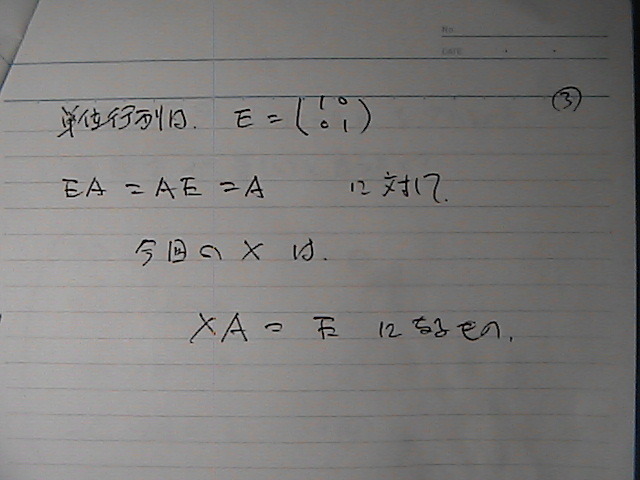 No.
DATE
③
単位行列は. E = (1 0
0 1)
EA = AE = A に対して.
今回の X は.
XA = E になるもの.